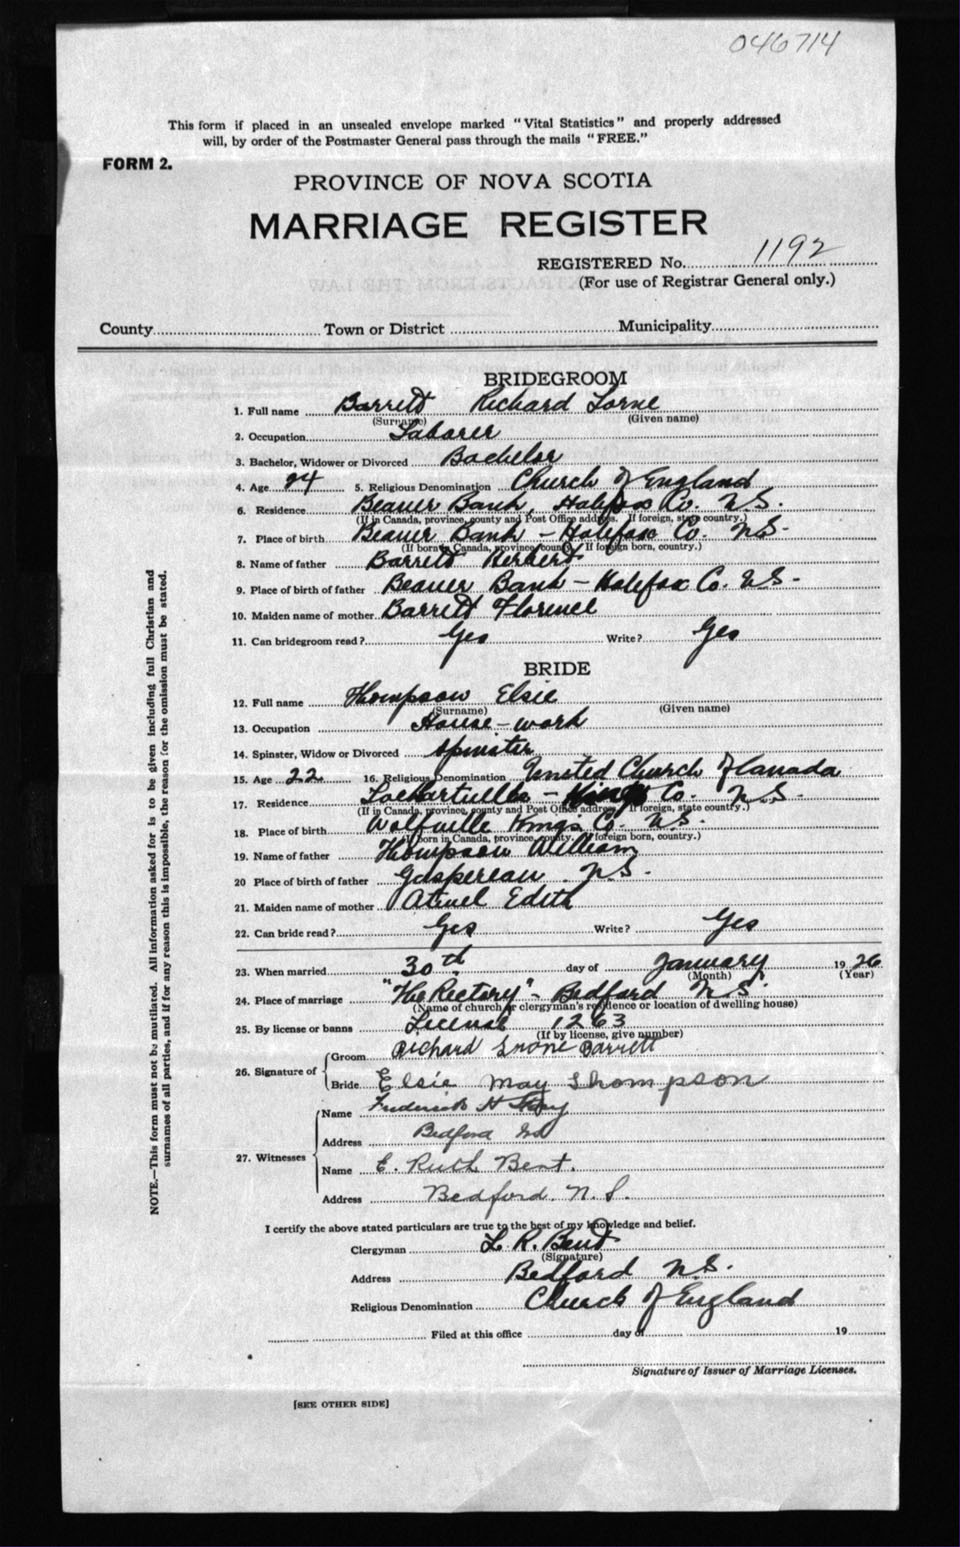 046714
This form if placed in an unsealed envelope marked "Vital Statistics" and properly addressed
will, by order of the Postmaster General pass through the mails "FREE."
FORM 2.
PROVINCE OF NOVA SCOTIA
MARRIAGE REGISTER
REGISTERED No. 1192
(For use of Registrar General only.)
County Town or District Municipality
BRIDEGROOM
1. Full name Barrett Richard Lorne
(Surname) (Given name)
2. Occupation Laborer
3. Bachelor, Widower or Divorced Bachelor
4. Age 24 5. Religious Denomination Church of England
6. Residence Beaver Bank, Halifax Co. N.S.
(If in Canada, province, county and Post Office address. If foreign, state country.)
7. Place of birth Beaver Bank - Halifax Co. N.S.
(If born in Canada, province, county. If foreign born, country.)
8. Name of father Barrett Herbert
9. Place of birth of father Beaver Bank - Halifax Co. N.S.
10. Maiden name of mother Barrett Florence
11. Can bridegroom read? Yes Write? Yes
BRIDE
12. Full name Thompson Elsie
(Surname) (Given name)
13. Occupation House-work
14. Spinster, Widow or Divorced Spinster
15. Age 22 16. Religious Denomination United Church of Canada
17. Residence - Co. N.S.
(If in Canada, province, county and Post Office address. If foreign, state country.)
18. Place of birth Wolfville Kings Co. N.S.
(If born in Canada, province, county. If foreign born, country.)
19. Name of father Thompson William
20 Place of birth of father Gaspereau N.S.
21. Maiden name of mother Edith
22. Can bride read? Yes Write? Yes
23. When married 30th day of January 1926
(Month) (Year)
24. Place of marriage "The Rectory" - Bedford N.S.
(Name of church or clergyman's residence or location of dwelling house)
25. By license or banns License 1263
(If by license, give number)
26. Signature of Groom Richard Lorne Barrett
Bride Elsie May Thompson
27. Witnesses Name Frederick H
Address Bedford NS
Name E. Ruth Bent.
Address Bedford N.S.
I certify the above stated particulars are true to the best of my knowledge and belief.
Clergyman L. R. Bent
(Signature)
Address Bedford N.S.
Religious Denomination Church of England
Filed at this office day of 19
Signature of Issuer of Marriage Licenses.
[SEE OTHER SIDE]
NOTE.—This form must not be mutilated. All information asked for is to be given including full Christian and
surnames of all parties, and if for any reason this is impossible, the reason for the omission must be stated.